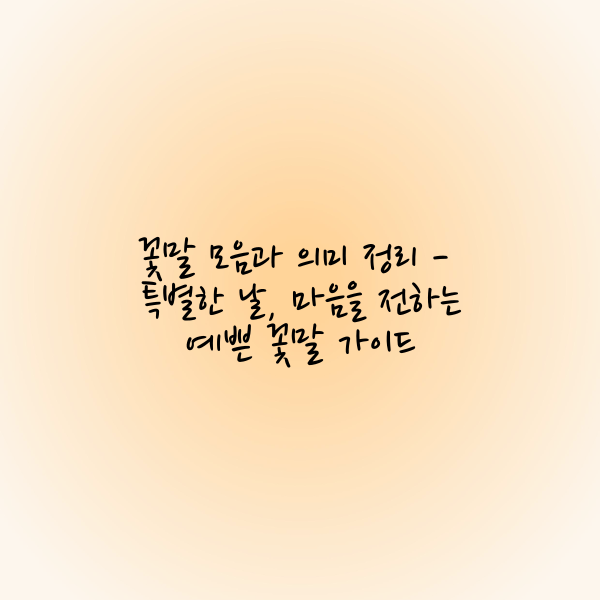 꽃말 모음과 의미 정리 -
특별한 날, 마음을 전하는
예쁜 꽃말 가이드